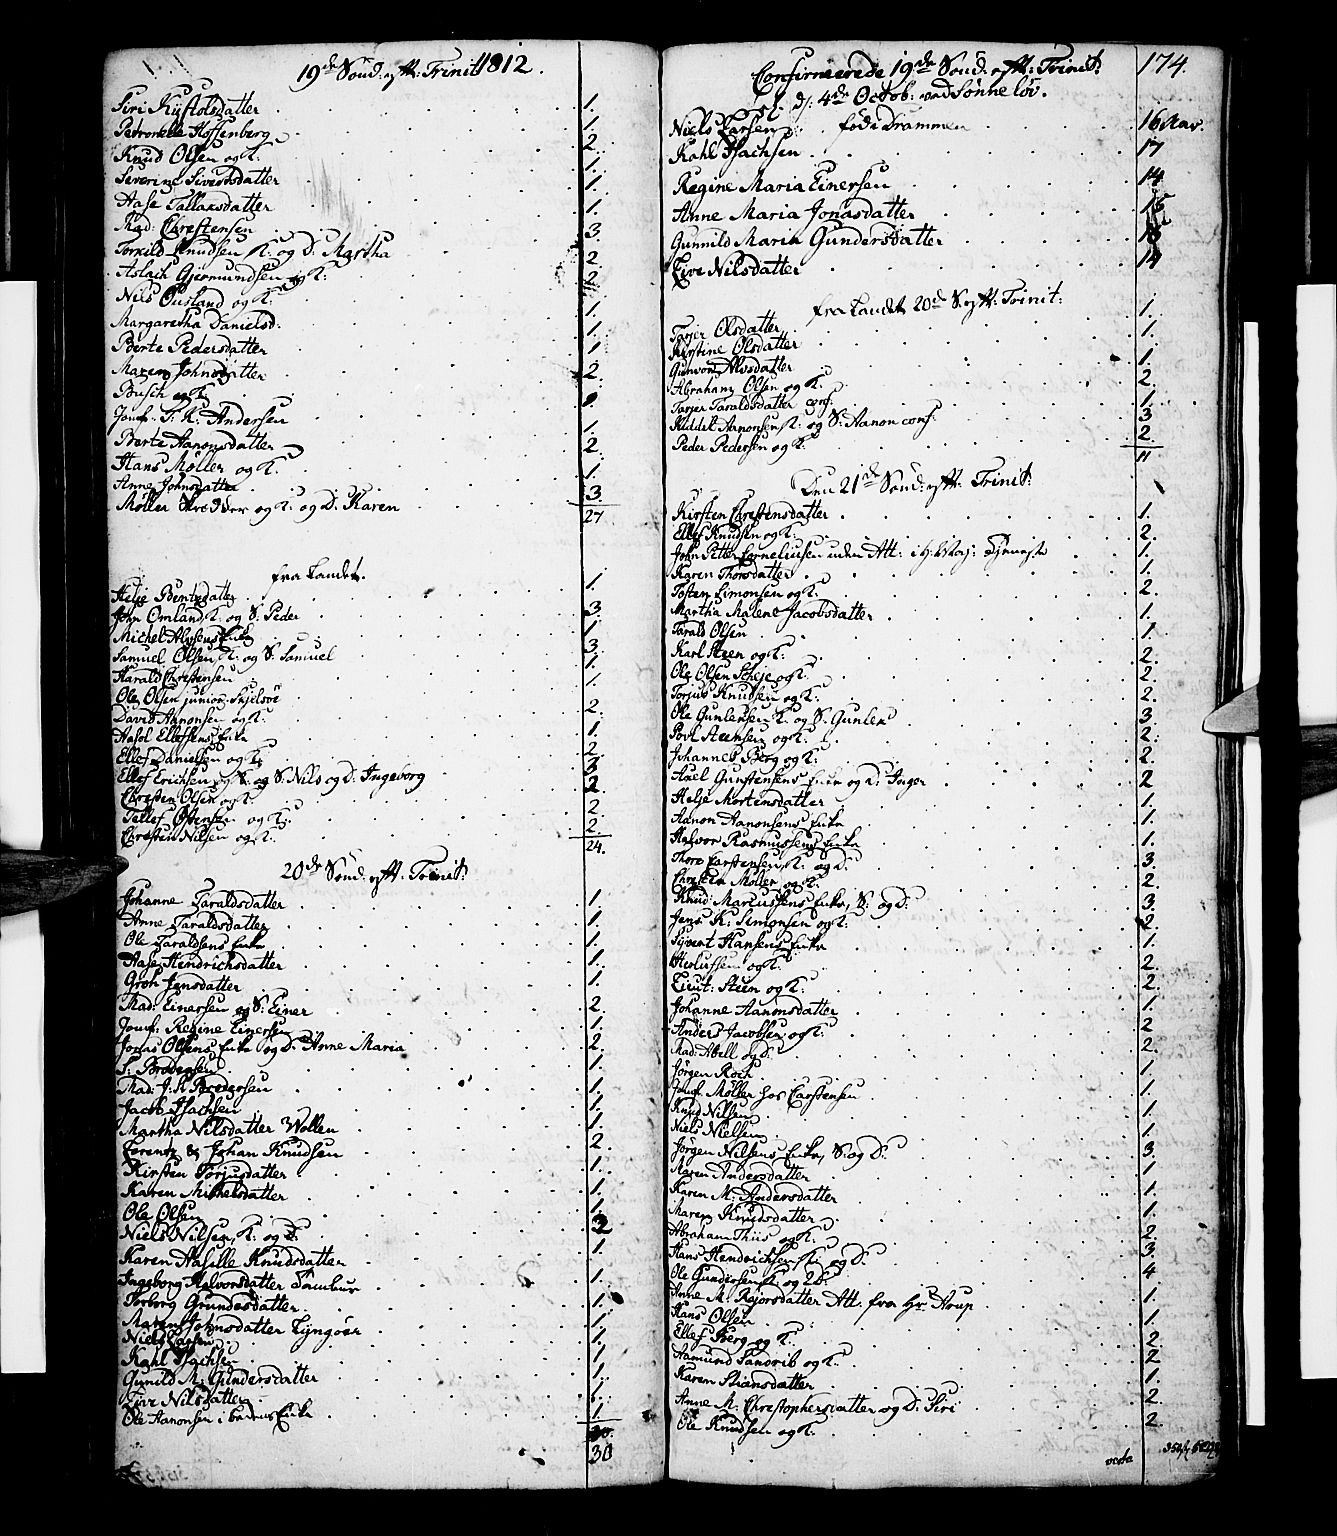 19de Sönd: eft: Trinit: 1812.
Siri Kistolsdatter 1.
Petronelle Hoffenberg 1.
Knud Olsen og K: 2.
Severine Sivertsdatter 1.
Aase Tallaksdatter 1.
Mad: Christensen 1.
Torkild Knudsen K: og D: Martha 3.
Aslach Gjermundsen og K: 2.
Nils Ousland og K: 2.
Margaretha Danielsd: 1.
Berte Pedersdatter 1.
Maren Johnsdatter 1.
Busch og K: 2.
Jomf: T. K: Andersen
Berte Aanonsdatter 1.
Hans Möller og K: 2.
Anne Johnsdatter 1.
Möller og K: og D: Karen 3.
27
fra Landet.
Helje Bentsdatter 1.
John Omland, K: og S: Peder 3.
Michel Alvsens Enke 1.
Samuel Olsen, K: og S: Samuel 3.
Harald Christensen 1.
Ole Olsen junior Skjelsöe 1.
David Aanonsen og K: 2.
Aasol Ellefsens Enke 1.
Ellef Danielsen og K: 2.
Ellef Erichsen og S: Nils og D: Ingeborg
Christen Olsen og K: 2.
Tellef Ostensen og K: 2.
Christen Nilsen og K: 2.
24.
20de Sönd: eft: Trinit:
Johanne Taraldsdatter 1.
Anne Taraldsdatter 1.
Ole Taraldsens Enke 1.
Aase Hendrichsdatter 1.
Groh Jensdatter 1.
Mad: Einersen og S: Einer 2.
Jomf: Regine Einersen 1.
Jonas Olsens Enke og D: Anne Maria 2.
S: Brodersen 1.
Mad: J. K Brodersen 1.
Jacob Isachsen 1.
Martha Nilsdatter Wollen 1.
Lorentz & Johan Knudsen 2.
Kirsten Torjusdatter 1.
Karen Michelsdatter 1.
Ole Olsen 1.
Niels Nilsen, K: og D: 3
Karen Aasille Knudsdatter 1.
Ingeborg Halvorsdatter Tambur 1.
Torborg Grundesdatter 1.
Maren Johnsdatter Lyngöer 1.
Niels Larsen 1.
Kahl Isachsen 1.
Gunild M: Gundersdatter 1.
Live Nilsdatter 1.
Ole Aanonsen i Enke 1.
30
Confirmerede 19de Sönd: eft: Trinit: 174.
d: 4de Octob: ved Sönneløv.
Niels Larsen föd i Drammen 16 Aar.
Kahl Isachsen 17
Regine Maria Einersen 14
Anne Maria Jonasdatter 15
Gunnild Maria Gundersdatter 15
Live Nilsdatter 14
fra Landet 20de S: eft: Trinit:
Tarjer Olsdatter 1.
Kirstine Olsdatter 1.
Gunvor Alvsdatter 1.
Abraham Olsen og K: 2.
Tarjer Taraldsdatter conf: 1.
Kiddel Aanonsen, K: og S: Aanon conf: 3
Peder Pedersen og K: 2.
11
Den 21de Sönd: eft: Trinit:
Kirsten Christensdatter 1.
Ellef Knudsen og K: 2.
John Petter Corneliusen uden Att: i H: Tjeneste 1.
Karen Thorsdatter 1.
Tosten Simonsen og K: 2.
Martha Malene Jacobsdatter 1.
Tarald Olsen 1.
Karl Steen og K: 2.
Ole Olsen Scheje og K: 2.
Torjus Knudsen og K: 2.
Ole Gunlexsen K: og S: Gunlex 3.
Povl Steensen og K: 2.
Johannes Berg og K: 2.
Axel Gunstensens Enke og D: Inger 2
Helje Mortensdatter 1.
Aanon Aanonsens Enke 1.
Halvor Rasmussens Enke 1.
Thore Carstensen, K: og D: 3.
Christen Möller og K: 2.
Knud Marcussens Enke, S: og D: 3.
Jens K: Simonsen og K: 2.
Sivert Hansens Enke 1.
Herlufsen og K: 2.
Lieut: Steen og K: 2.
Johanne Aanonsdatter 1.
Anders Jacobsen og K: 2.
Mad: Abell og D: 2.
Jörgen Roch 1.
Jomf: Möller hos Carstensen 1.
Knud Nilsen 1.
Niels Nielsen 1.
Jörgen Nilsens Enke, S: og D: 3.
Maren Andersdatter 1.
Karen M: Andersdatter 1.
Maren Knudsdatter 1.
Abraham Thiis og K: 2.
Hans Hendrichsen, K: og D: 3.
Ole Gundersen K: og 2 D: 4
Anne M: Rejersdatter Att. fra Hr: Aarup 1.
Hans Olsen 1.
Ellef Berg og K: 2.
Aamund Sandvib og K: 2.
Karen Stiansdatter 1.
Anne M: Christophersdatter og D: Siri 2.
Ole Knudsen og K: 2.
verta